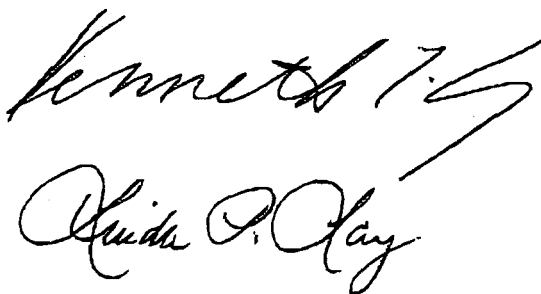 Kenneth L.
Linda P. Lay